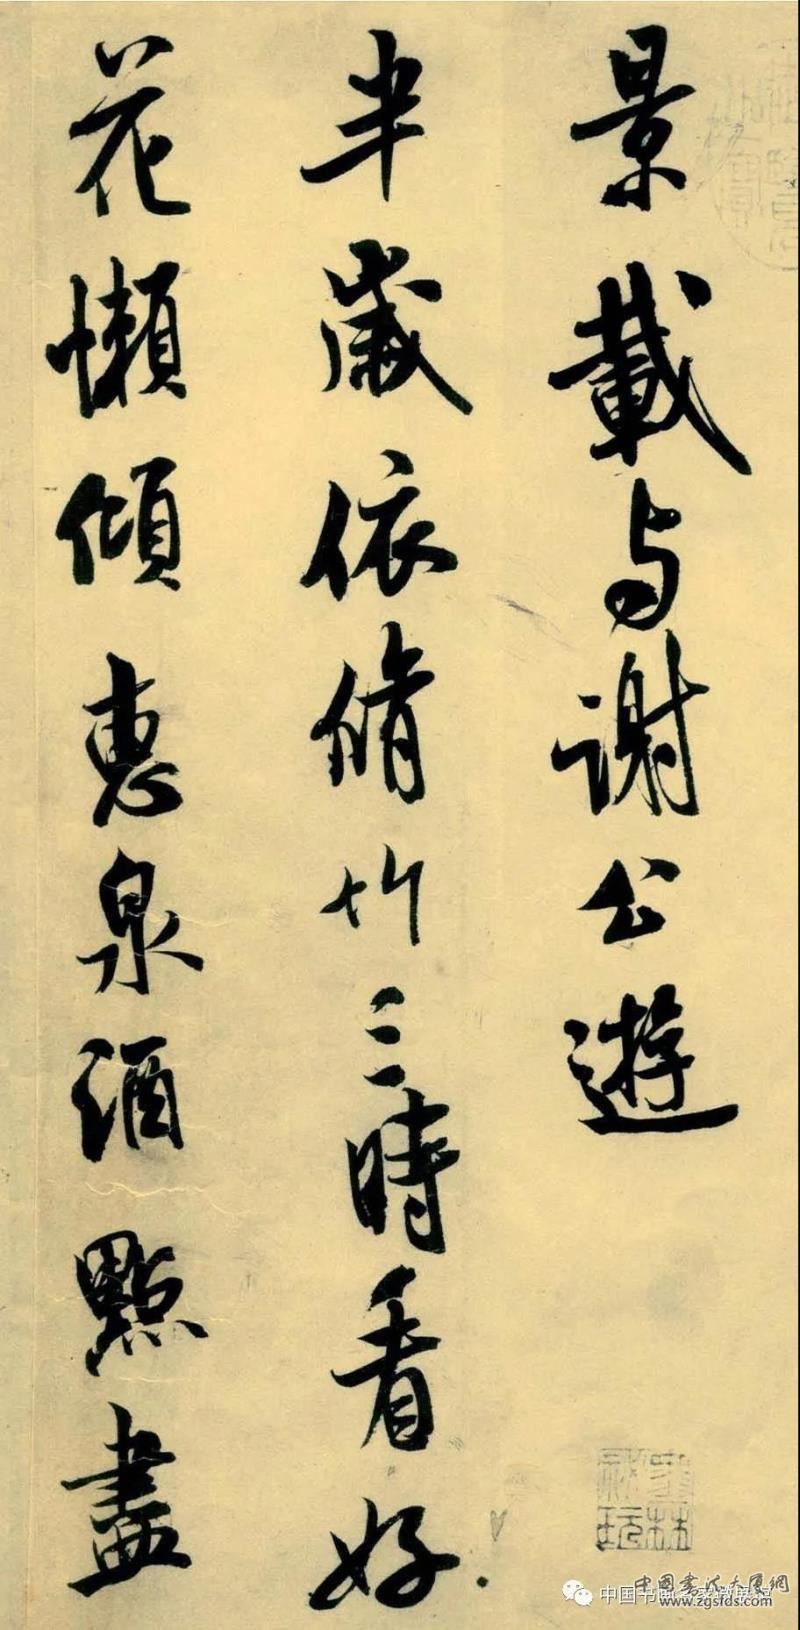 景載与謝公遊
半歲依脩竹三時看好
花懶傾惠泉酒點盡
中國書法大厦網
www.zgsfds.com